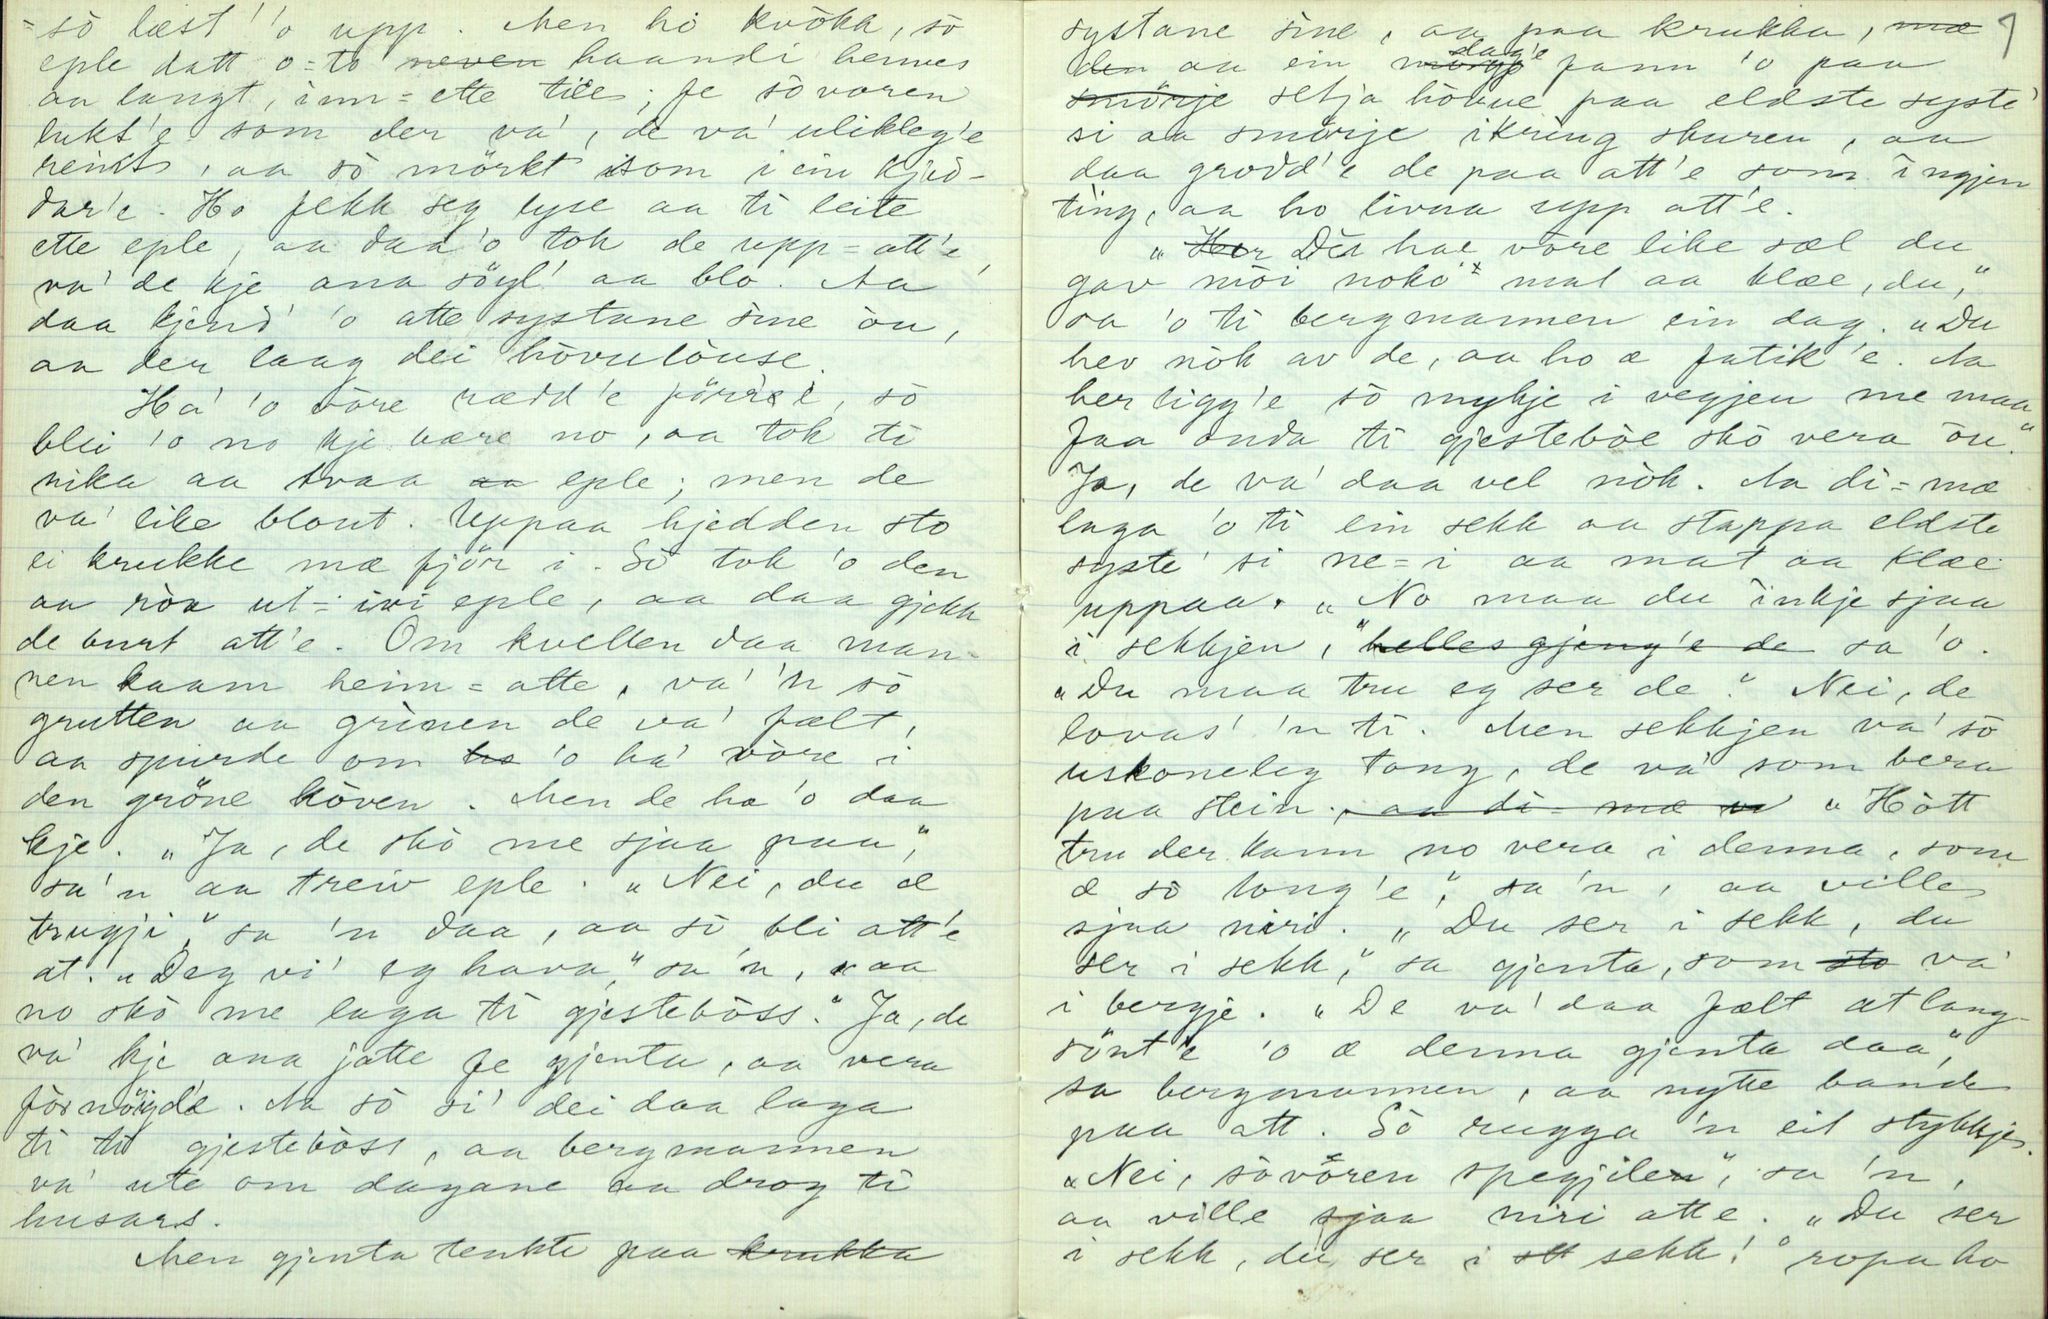 =sò læst' 'o upp. Men hò kvökk, sò
eple datt o=to neven haandi hennes
aa langt, inn=ette tile; fe sòvoren
lukt'e som der va', de va' ulikleg'e
reint, aa sò mörkt som i ein kjød-
dar'e. Ho fekk seg lyse aa ti leite
ette eple, aa daa 'o tok de upp=att'e,
va' de kje ana söyl' aa blo. Aa
daa kjend' 'o atte systane sine òu,
aa der laag dei hòvulòuse.
Ha' 'o vòre rædd'e förri, sò
blei 'o no kje bære no, aa tok ti
nika aa tvaa aa eple; men de
va' like blout. Uppaa hjedden sto
ei krukke mæ fjör i. Sò tok 'o den
aa ròa ut=ivi eple, aa daa gjekk
de burt att'e. Om kvellen daa man-
nen kaam heim=atte, va' 'n sò
grutten aa grinen de va' fælt,
aa spurde om ho 'o ha' vòre i
den gröne kòven. Men de ha 'o daa
kje. „Ja, de skò me sjaa paa,"
sa'n aa treiv eple. „Nei, du æ
trugji," sa 'n daa, aa sò bli att'e
at. „Deg vi' eg hava," sa'n, „aa
no skò me laga ti gjestebòss." Ja, de
va' kje ana jatte fe gjenta, aa vera
fòrnöygde. Aa sò si' dei daa laga
ti til gjestebòss, aa bergmannen
va' ute om dagane aa drog ti
husars.
Men gjenta tenkte paa krukka
systane sine, aa paa krukka, mæ
9
den aa ein morgo dag'e fann 'o paa
smörje setja hòvue paa eldste syste'
si aa smörje ikring skuren, aa
daa grodd'e de paa att'e som ingjen
ting, aa ho livna upp att'e.
„Hor Dèt hae vòre like sæl du
gav mòi noko mat aa klæe, du,"
sa 'o ti bergmannen ein dag. „Du
hev nòk av de, aa ho æ fatik'e. Aa
her ligg'e sò mykje i vegjen me maa
faa onda ti gjestebòe skò vera òu."
Ja, de va' daa vel nòk. Aa di=mæ
laga 'o ti ein sekk aa stappa eldste
syste' si ne=i aa mat aa klæe
uppaa. „No maa du inkje sjaa
i sekkjen," helles gjeng'e de sa 'o.
„Du maa tru eg ser de." Nei, de
lovas' 'n ti. Men sekkjen va' sò
uskoneleg tong, de va' som bera
paa stein, aa di=mæ „Hòtt
tru der kann no vera i denna, som
æ sò tong'e," sa 'n, aa villes
sjaa niri. „Du ser i sekk, du
ser i sekk," sa gjenta, som sto va'
i bergje. „De va' daa fælt at lang-
sönt'e 'o æ denna gjenta daa,"
sa bergmannen, aa nytte bande
paa att. Sò rugga 'n eit stykkje.
„Nei, sòvòren spegjilen", sa 'n,
aa ville sjaa niri atte. „Du ser
i sekk, du ser i stt sekk!" ropa ho